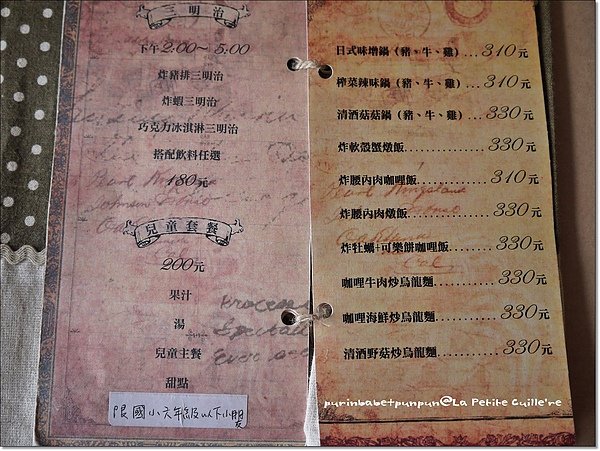 三明治
下午2:00~5:00
炸豬排三明治
炸蝦三明治
巧克力冰淇淋三明治
搭配飲料任選
180元
兒童套餐
200元
果汁
湯
兒童主餐
甜點
限國小六年級以下小朋友
日式味增鍋(豬、牛、雞)...310元
榨菜辣味鍋(豬、牛、雞)...310元
清酒菇菇鍋(豬、牛、雞)...330元
炸軟殼蟹燉飯...330元
炸腰內肉咖哩飯...310元
炸腰內肉燉飯...330元
炸牡蠣+可樂餅咖哩飯...330元
咖哩牛肉炒烏龍麵...330元
咖哩海鮮炒烏龍麵...330元
清酒野菇炒烏龍麵...330元
purinbabetpunpun@La Petite Cuille're